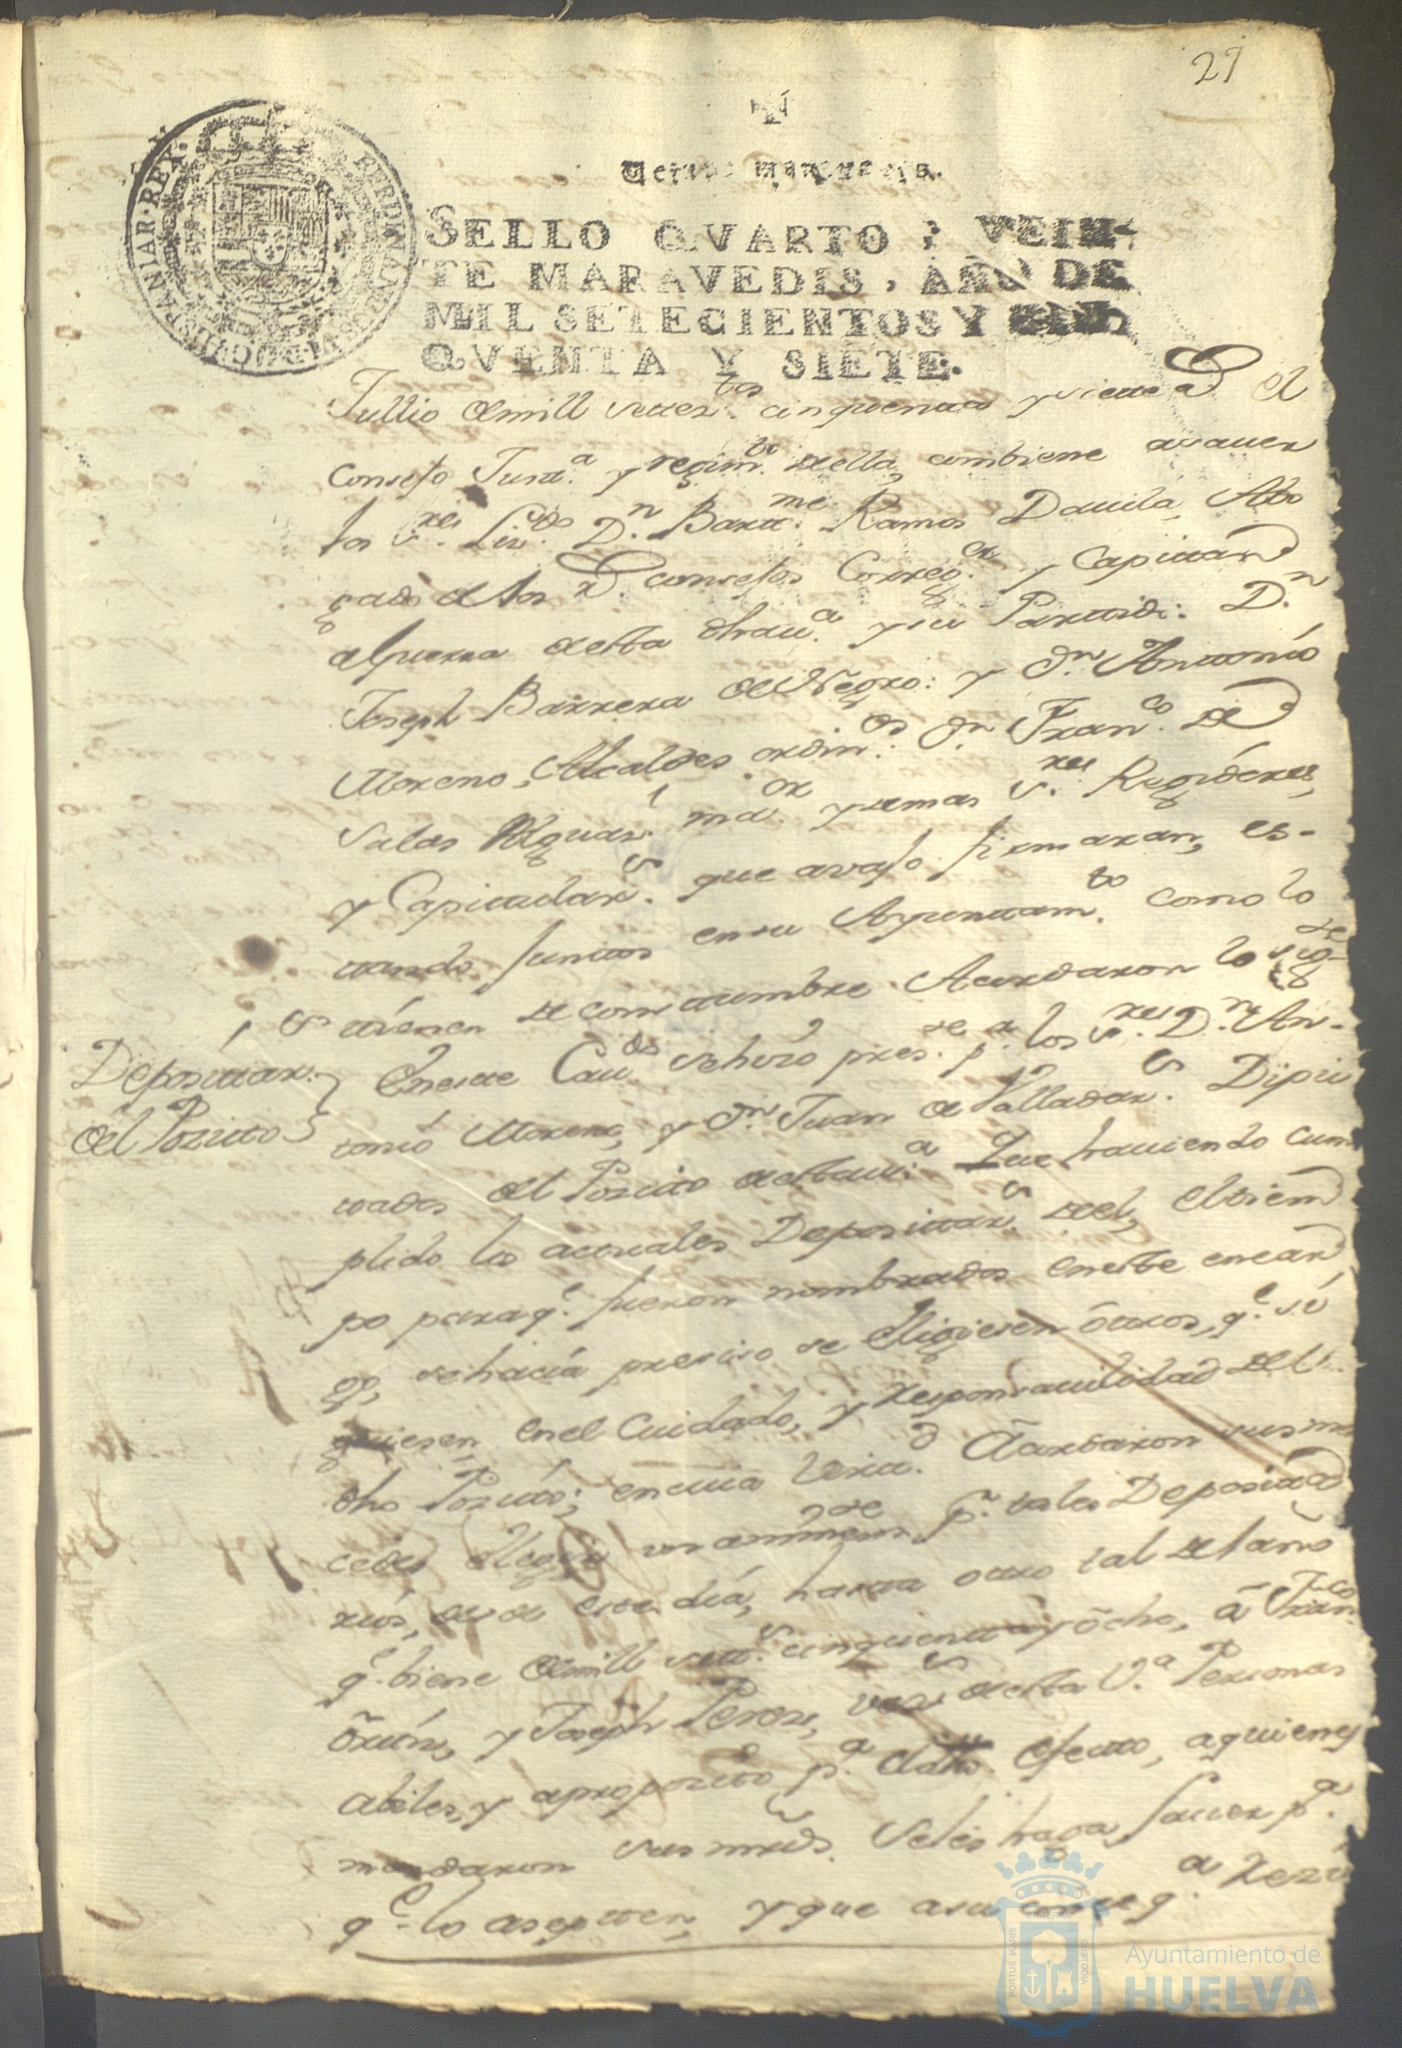 27
Veinte maravedis.
SELLO QVARTO, VEIN-
TE MARAVEDIS, AÑO DE
MIL SETECIENTOS Y CIN-
QVENTA Y SIETE.
HISPANIAR·REX·
Jullio de mill settez.tos cinquenta y siette a el
Consejo Just.a y regim.to della combiene asauer
los S.res Liz.do D.n Bart.me Ramos Dauila, Abo
gado de los R. consejos Correg.or y Capittan
a Guerra desta dha u.a y su Partido: D.n
Joseph Barrera de Negro: y d.n Antonio
Moreno, Alcaldes ordin.os d.n Fran.co de
Salas Alguas.l ma.or y demas S.res Rexidores,
y Capitulars. que avajo firmaran, es-
tando junttos en su Ayunttam.to como lo
tienen de comtumbre Acordaron lo sig.te
Deposittar.s
del Pozitto
En este Cau.do se hizo pres.te p.r los S.res D.n An-
tonio Moreno, y d.n Juan de Valladar.s Dipu
tados del Pozitto desta u.a Que hauiendo cum
plido los actuales Deposittar.s del, el tiem
po para q.e fueron nombrados en este encar
go, se hacia preciso se eligiesen ôttros, q.e si
guiesen en el Cuidado, y responsauilidad del
dho Pozitto; en cuia Virtt.d Acordaron sus mr
cedes elegir unanimem.te p.r tales Deposita
rios, desde este dia, hasta otro tal del año
q.e biene de mill sett.s cinquenta y ôcho, â Fran.co
Ôrtiz, y Joseph Perez, vez.s desta V.a Personas
abiles, y aproposito p.a dho efectto, a quienes
mandaron sus mrds. se les haga sauer p.a
q.e lo asepten, y que a su
Ayuntamiento de
HUELVA